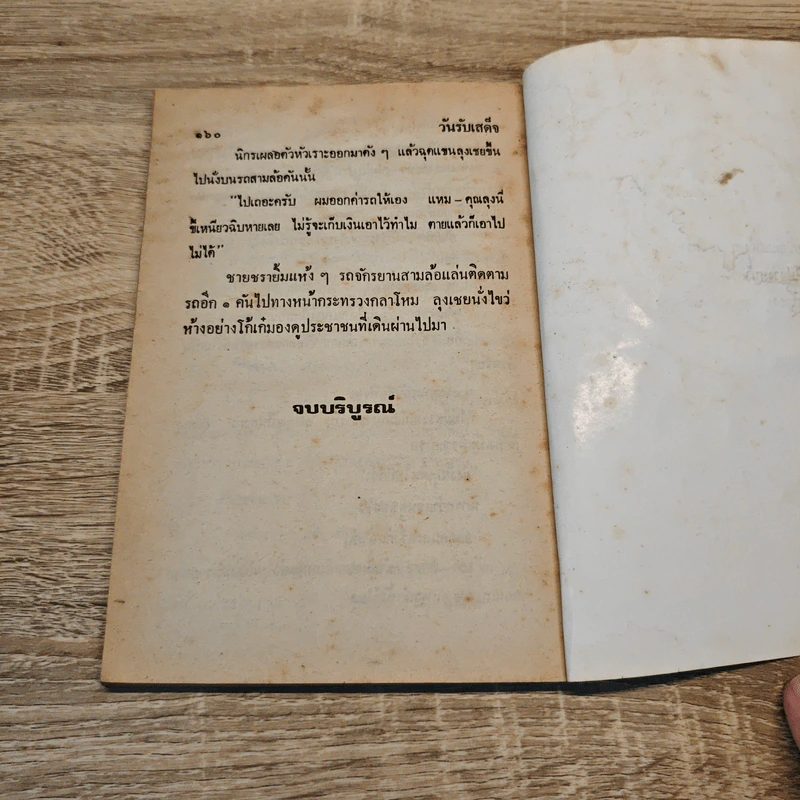 ๑๖๐
วันรับเสด็จ
นิกรเผลอตัวหัวเราะออกมาดัง ๆ แล้วฉุดแขนลุงเชยขึ้น
ไปนั่งบนรถสามล้อคันนั้น
"ไปเถอะครับ ผมออกค่ารถให้เอง แหม – คุณลุงนี่
ขี้เหนียวฉิบหายเลย ไม่รู้จะเก็บเงินเอาไว้ทำไม ตายแล้วก็เอาไป
ไม่ได้"
ชายชรายิ้มแห้ง ๆ รถจักรยานสามล้อแล่นติดตาม
รถอีก ๑ คันไปทางหน้ากระทรวงกลาโหม ลุงเชยนั่งไขว่
ห้างอย่างโก้เก๋มองดูประชาชนที่เดินผ่านไปมา
จบบริบูรณ์